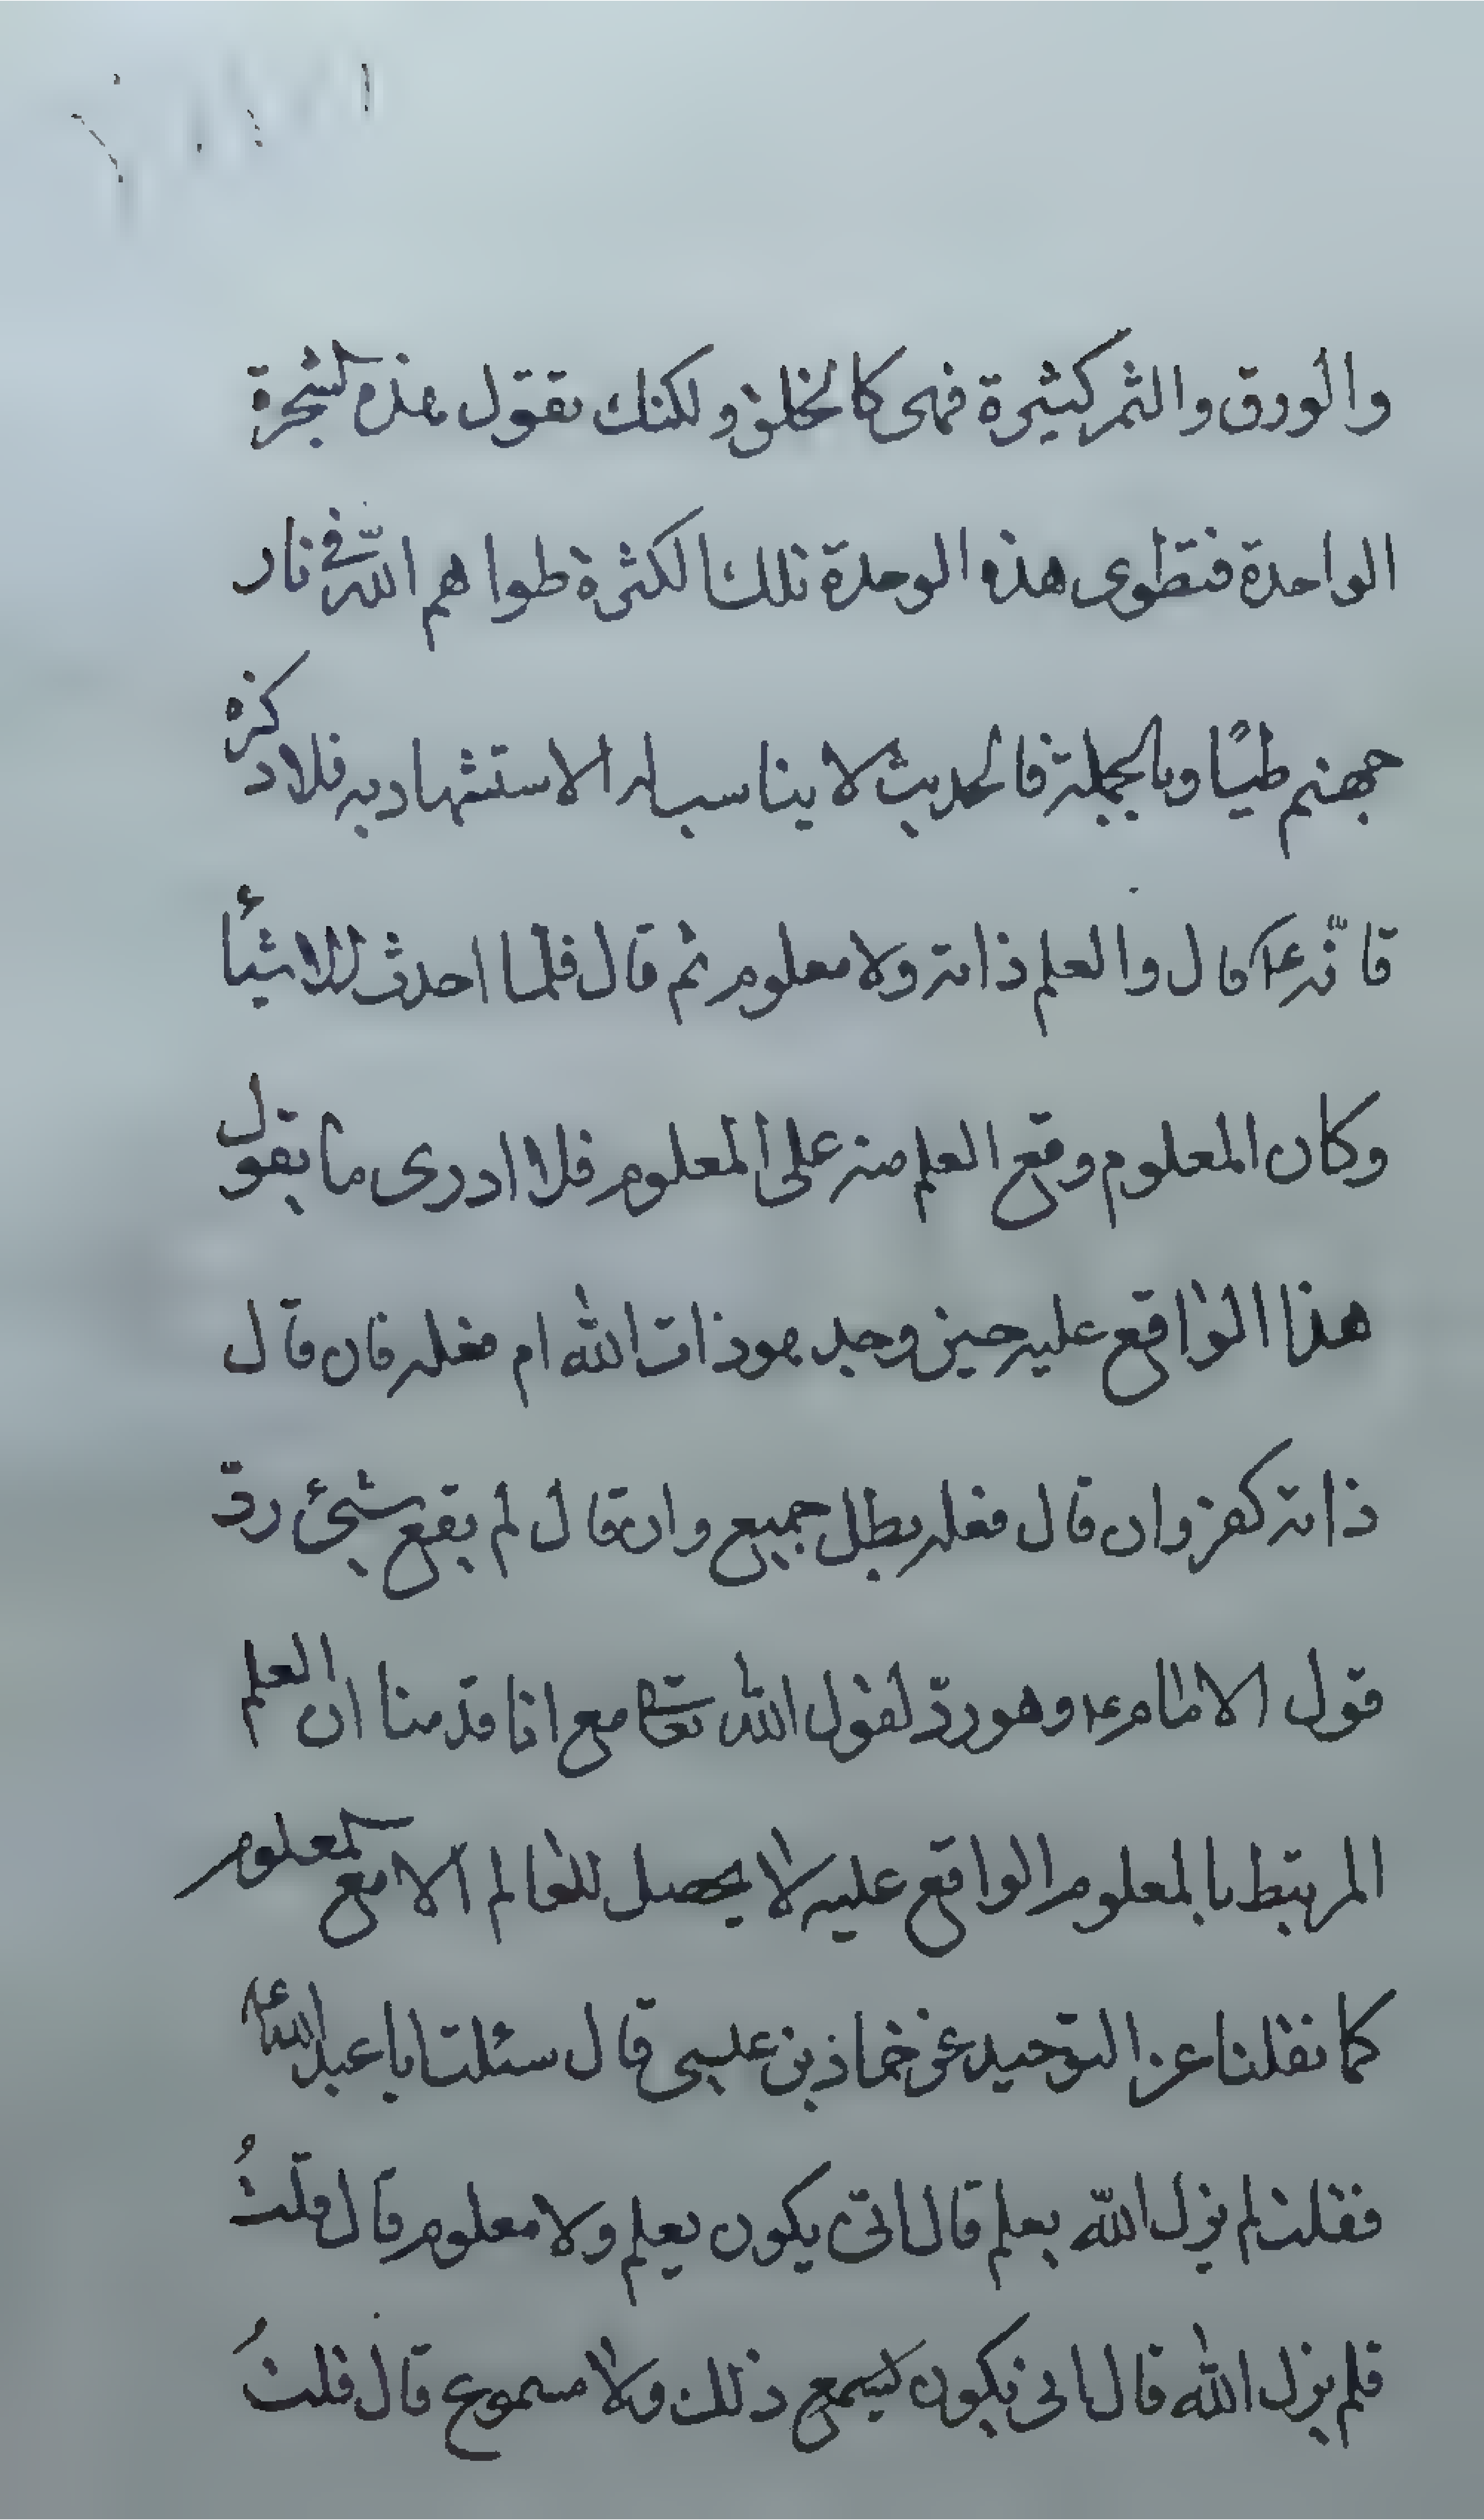 والورق والثمر كثيرة فهى كالخلق ولكنك تقول هذه الشجرة
الواحدة فتطوى هذه الوحدة تلك الكثرة طواهم الله فى نار
جهنم طيًا وبالجملة فالحديث لا يناسب له الاستشهاد به فلا ذكره
فانّه ع قال والعلم ذاته ولا معلوم ثم قال فلما احدث الاشيأ
وكان المعلوم وقع العلم منه على المعلوم فلا ادرى ما يقول
هذا الواقع عليه حين وجد هو ذات الله ام فعله فان قال
ذاته كفر وان قال فعله بطل جميع وان قال لم يقع شىئ ردّ
قول الامام ع وهو ردّ لقول الله تعالى مع انا قدمنا ان العلم
المرتبط بالمعلوم الواقع عليه لا يحصل للعالم الا مع المعلوم
كما نقلنا عن التوحيد عن حماد بن عيسى قال سئلت ابا عبد الله ع
فقلت لم يزل الله يعلم قال انّى يكون يعلم ولا معلوم قال قلتُ
فلم يزل الله قال انى يكون يسمع ذلك ولا مسموع قال قلتُ